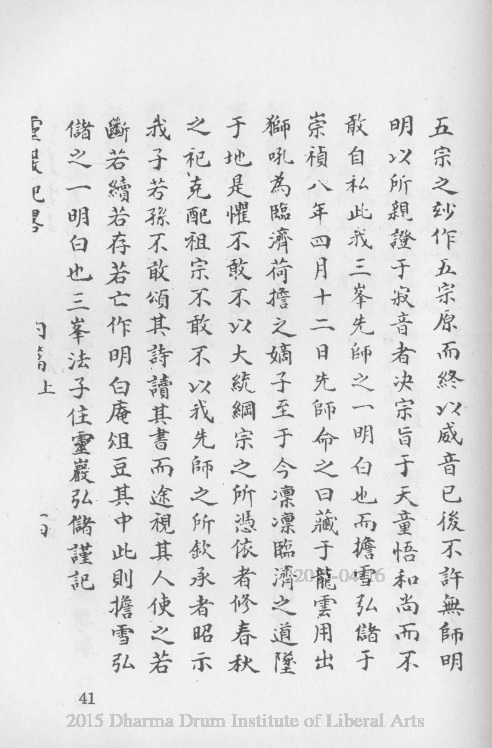 五宗之玅作五宗原而終以威音已後不許無師明
明以所親證于寂音者决宗旨于天童悟和尚而不
敢自私此我三峯先師之一明白也而擔雪弘儲于
崇禎八年四月十二日先師命之曰藏于龍雲用出
獅吼為臨濟荷擔之嫡子至于今凛凛臨濟之道墜
于地是懼不敢不以大統綱宗之所憑依者修春秋
之祀克配祖宗不敢不以我先師之所欽承者昭示
我子若孫不敢頌其詩讀其書而途視其人使之若
斷若續若存若亡作明白庵俎豆其中此則擔雪弘
儲之一明白也三峯法子住靈巖弘儲謹記
靈巖記畧
内篇上
41
2015 Dharma Drum Institute of Liberal Arts